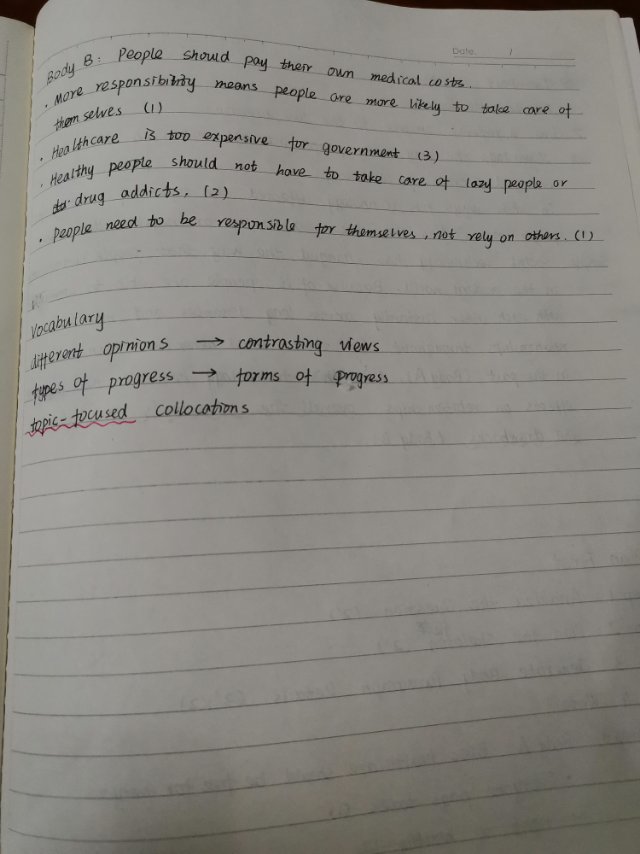 Date. /
Body B: People should pay their own medical costs.
· More responsibility means people are more likely to take care of
themselves (1)
· Healthcare is too expensive for government (3)
· Healthy people should not have to take care of lazy people or
drug addicts. (2)
· People need to be responsible for themselves, not rely on others. (1)
Vocabulary
different opinions → contrasting views
types of progress → forms of progress
topic-focused collocations